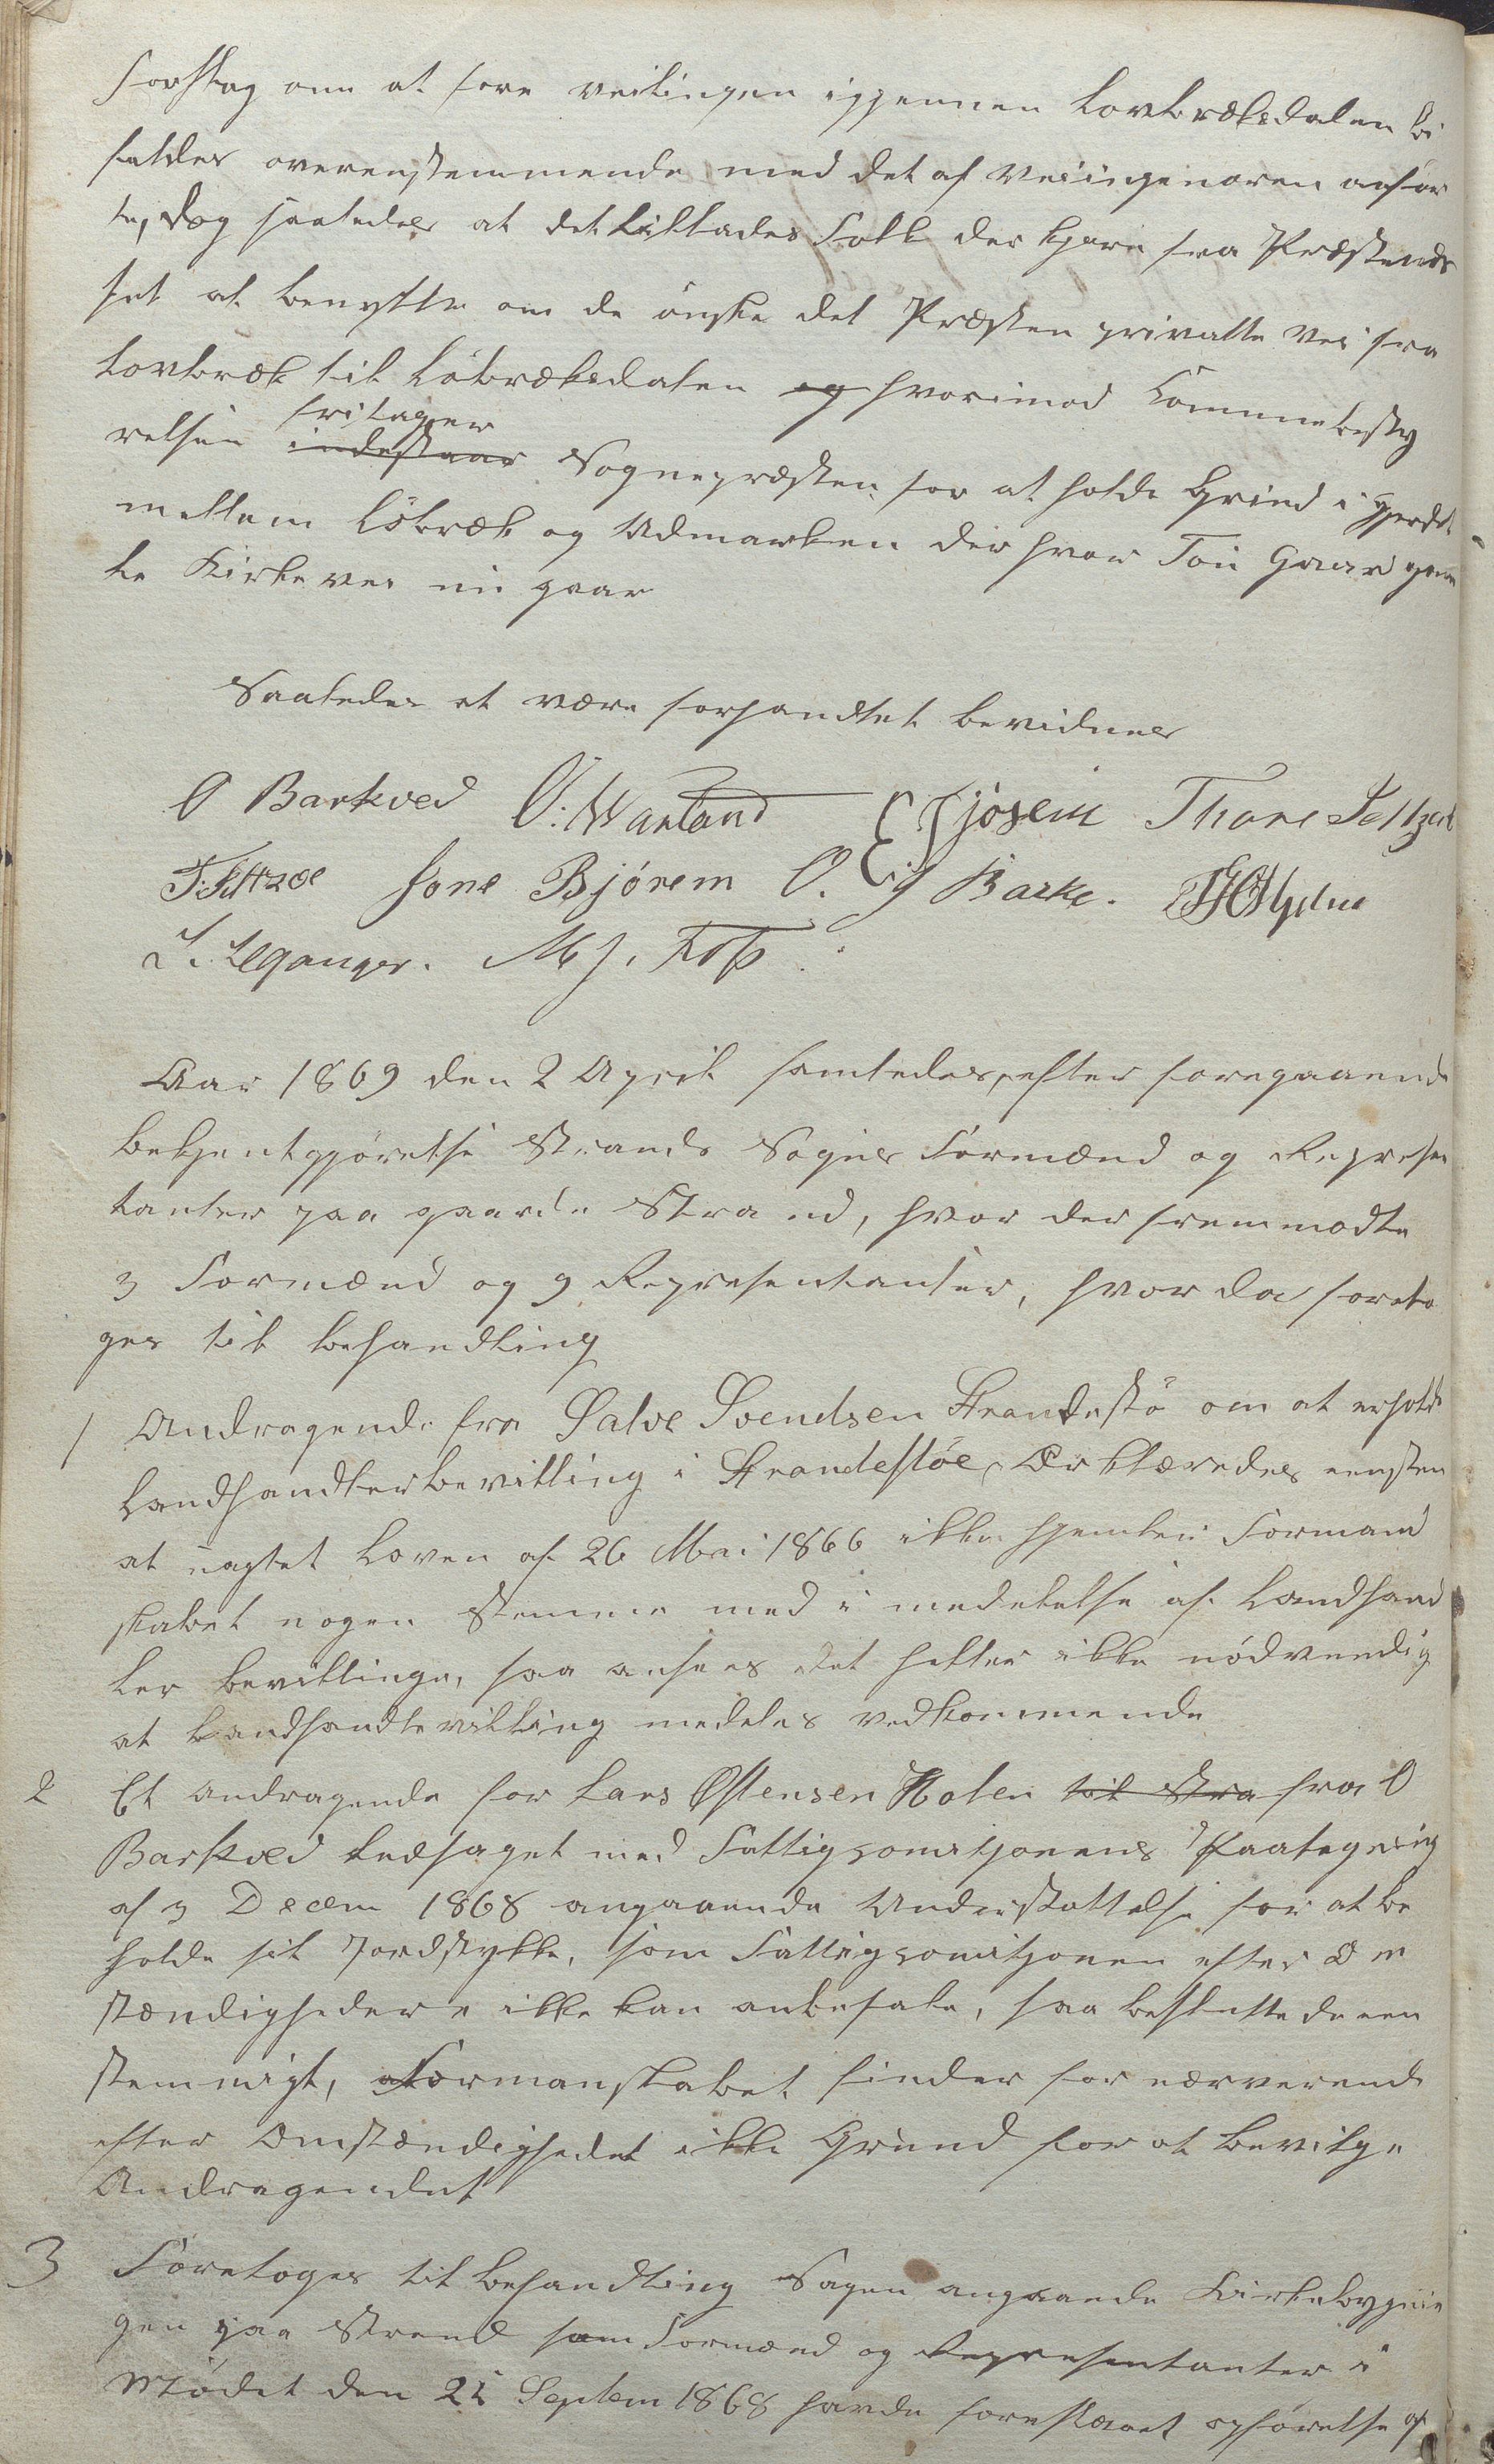 Forslag om at føre veilinyen igjennem Lovbræksdalen bi
faldes overenstemmende med det af Veiingeniøren anfør
te, dog saaledes at det tillades Folk der kjøre fra Præstends
set at benytte om de ønske det Præsten privatte Vei fra
Lovbræk til Løbræksdalen og hvorimod Kommunebesty
fritager
relsen indestaar Sognepræsten for at holde Grind i Gjerdet
mellem Løbræk og Udmarken der hvor Tou Gaar gam
le Kirkevei nu gaar
Saaledes at være forhandlet bevidnes
O Barkved O. Warland E Fjosem Thore Seltzer
Jone Bjørem O. Barke.
L. Leganger. M J. Fos
Aar 1869 den 2 April samledes, efter foregaaende
bekjentgjørelse Strands Sogns Formænd og Represen
tanter paa gaarde Strand, hvor der fremmødte
3 Formænd og 9 Representanter, hvor da foreto
ges til behandling
1 Andragende fra Salve Svendsen Strandestø om at erholde
Landhandlerbevilling i Strandestøe, Erklæredes eensten
at uagtet Loven af 26 Mai 1866 ikke hjemler Formand
skabet nogen stemme med i medelelse af Landhand
ler bevillinge, saa ansees det heller ikke nødvendig
at Landhandlevilling medeles vedkommende
2 Et Andragende for Lars Østensen Holen til Stra fra O
Barkved ledsaget med Fattigcomisjonens Paategning
af 3 Decem 1868 angaaende Understøttelse for at be
holde sit Jordstykke, som Fattigcomisjonen efter Om
stændighedere ikke kan anbefale, saa besluttede een
stemmigt, Formanskabet finder for nærverende
efter Omstændighedet ikke Grund for at bevilge
Andragendet
3 Foretoges til behandling Sagen angaaende Kirkebygnin
gen paa Strand som Formænd og Representanter i
Mødet den 21 Septem 1868 havde foreslaaet opførelse af